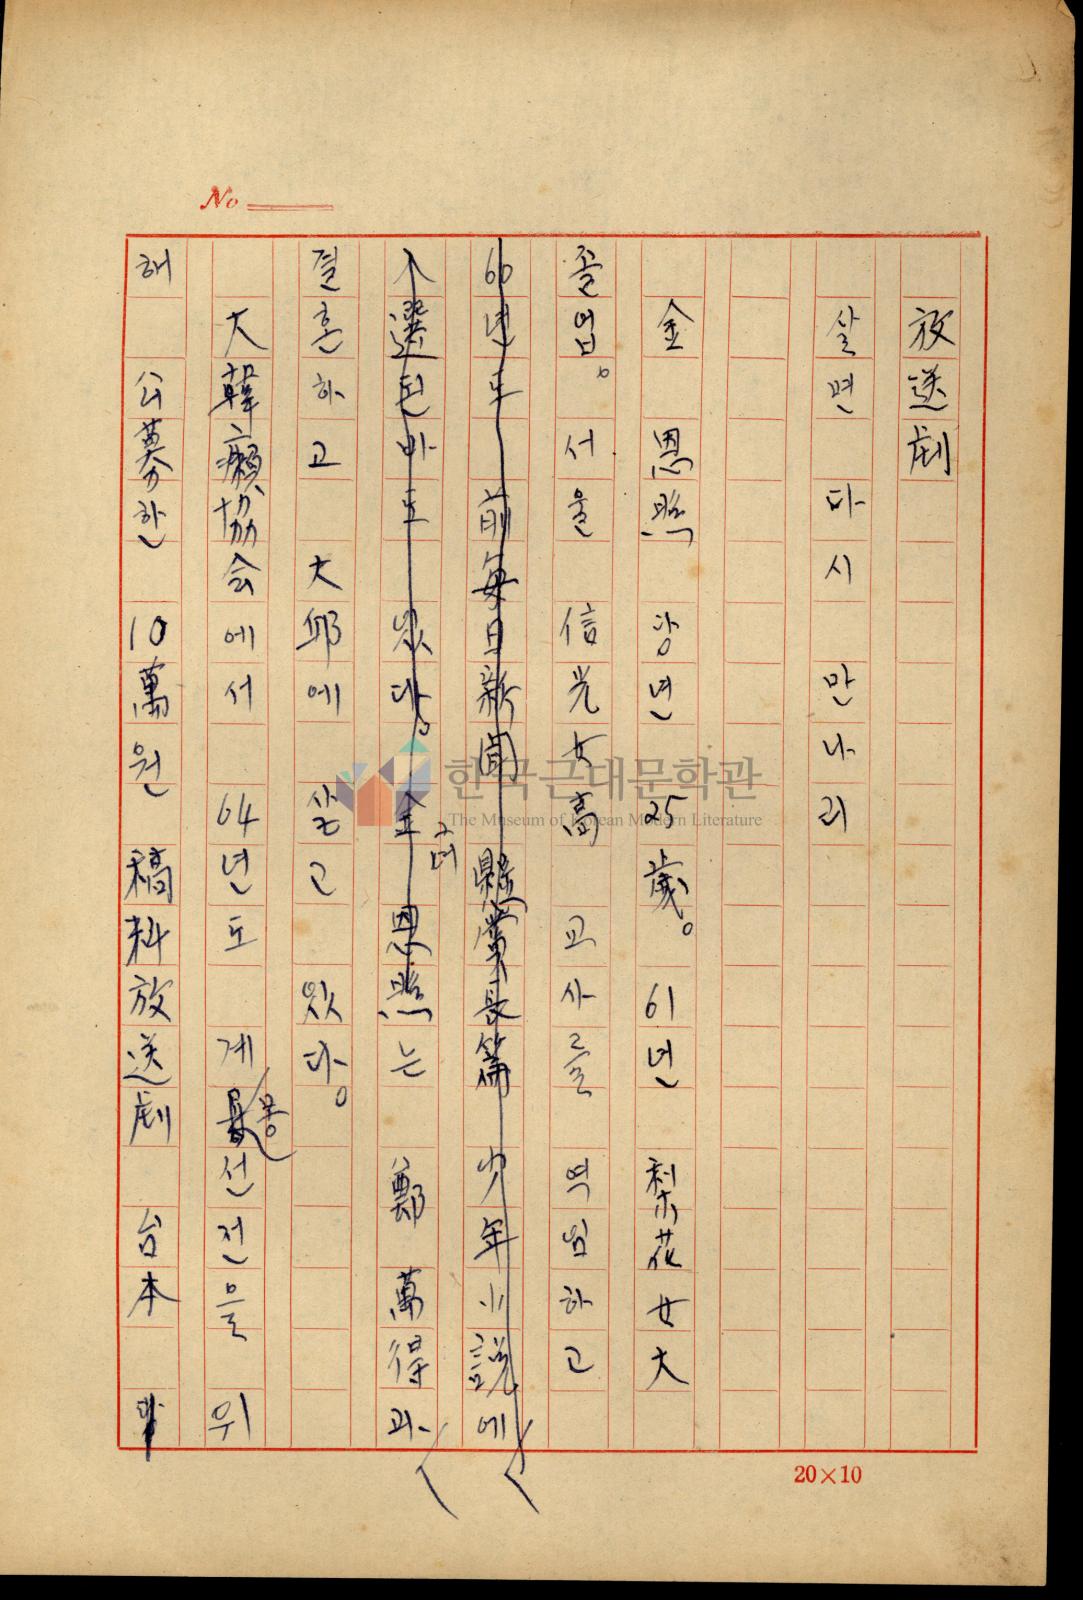 No
放送劇
살면 다시 만나리
金 恩熙 당년 25歲。 61년 梨花女大
졸업。 서울 信光女高 교사를 역임하고
60년도 前每日新聞 懸賞長篇 少年小說에
入選된 바도 있다。 金恩熙는 鄭 萬得과
그녀
결혼하고 大邱에 살고 있다。
大韓癩協会에서 64년도 계몽선전을 위
해 公募한 10萬원 稿料放送劇 台本
한국근대문학관
The Museum of Korean Modern Literature
20×10